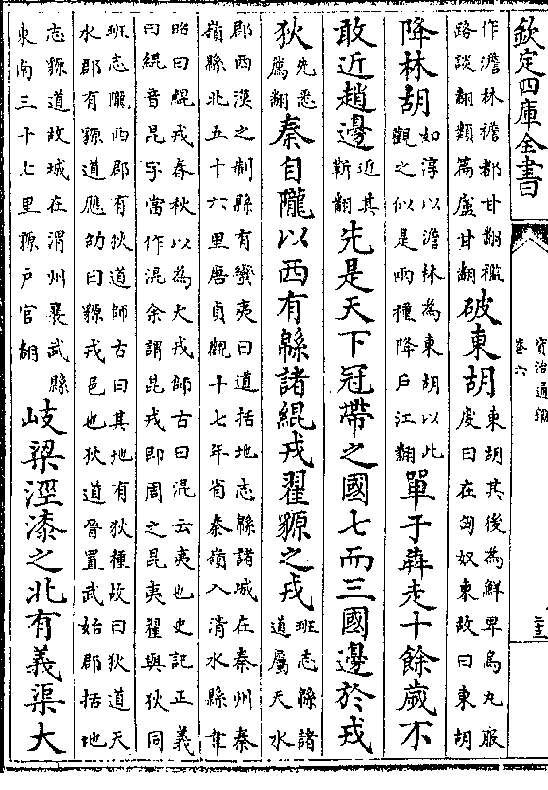 欽定四庫全書
資治通鑑
卷六
作澹林襜都甘翻襤
路談翻類篇盧甘翻
破東胡
東胡其後為鮮卑烏丸服
虔曰在匈奴東故曰東胡
降林胡
如淳以澹林為東胡以此
觀之似是兩種降戶江翻
單于犇走十餘歲不
敢近趙邊
近其
靳翻
先是天下冠帶之國七而三國邊於戎
狄
先悉
薦翻
秦自隴以西有緜諸緄戎翟獂之戎
班志緜諸
道屬天水
郡西漢之制縣有蠻夷曰道括地志緜諸城在秦州秦
嶺縣北五十六里唐貞觀十七年省秦嶺入清水縣韋
昭曰緄戎春秋以為犬戎師古曰混云夷也史記正義
曰緄音昆字當作混余謂昆戎即周之昆夷翟與狄同
班志隴西郡有狄道師古曰其地有狄種故曰狄道天
水郡有獂道應劭曰獂戎邑也狄道晉置武始郡括地
志獂道故城在渭州襄武縣
東南三十七里獂戶官翻
岐梁涇漆之北有義渠大